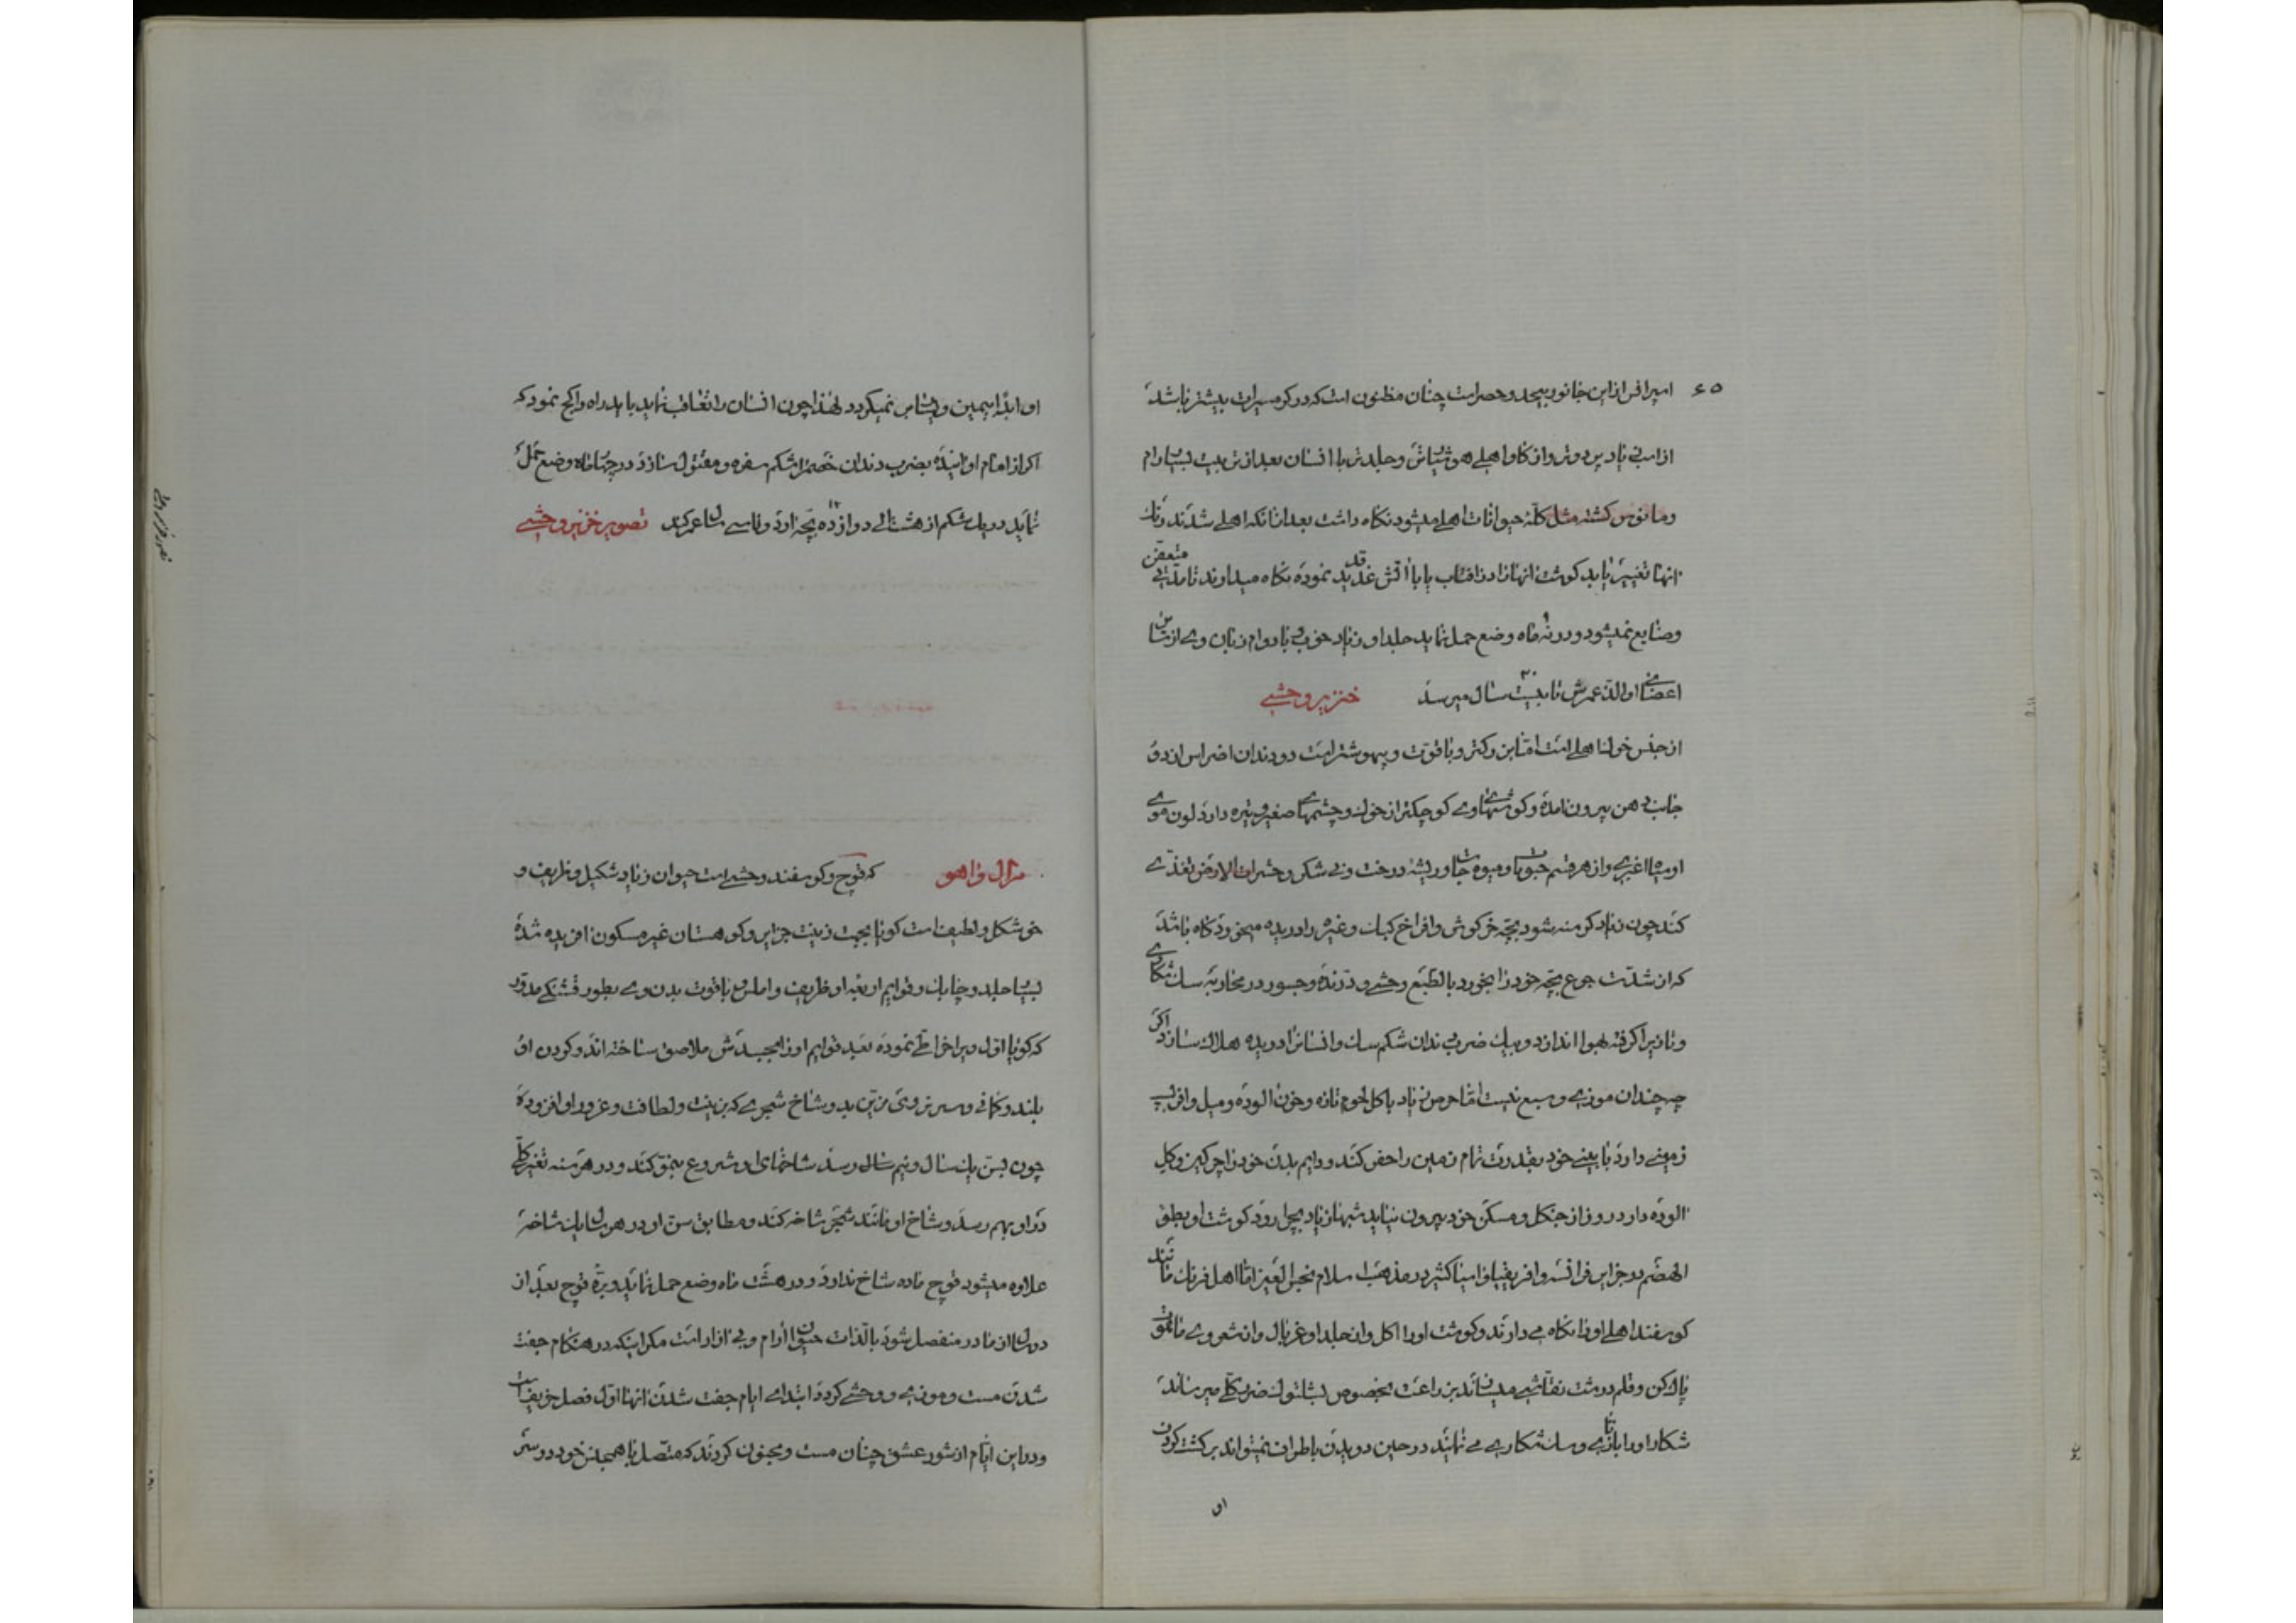 ۶۵
امیرافس از این جانور بیحد و حصر است چنان مظنون است که در کره سیرات بیشتر باشد
از اسب زیاد میدود و از کاو اهلی هوشیار و جلدتر با انسان بعد از تربیت بسیار رام
و مانوس کشته مثل کلهٔ حیوانات اهلی میشود نکاه داشت بعد از آنکه اهلی شدند رنک
انها تغییر یابد کوشت انها را در افتاب یا با اتش قدید نموده نکاه میدارند تا مدتی متعفن
و ضایع نمیشود و در نه ماه وضع حمل نماید جلد او زیاد خوب و با دوام زبان وی از سایر
اعضای او الذ عمرش تا بیست سال میرسد خنزیر وحشی
از جنس خوک اهلی است اما بزرکتر و با قوت و بیهوشتر است دو دندان اضراس از دو
جانب دهن بیرون امده و کوشهای وی کوچکتر از خوک و چشمهای صغیر و تیره دارد لون موی
او سیاه اغبری و از هر قسم حبوبات و میوه جات و ریشهٔ درخت و نی شکر و حشرات الارض تغذی
کند چون زیاد کرسنه شود بچهٔ خرکوش و افراخ کبک و غیره را دریده میخورد کاه باشد
که از شدت جوع بچه خود را بخورد بالطبع وحشی و درنده و جسور در محاربهٔ سک شکاری
و تازیرا کرفته بهوا اندازد و بیک ضرب دندان شکم سک و انسانرا دریده هلاک سازد اکر
چه چندان موذی و سبع نیست اما حرص زیاد باکل لحوم تازه و خون الوده و میل وافر به
زمینی دارد با بینی خود بقدرت تمام زمین را حفر کند و دایم بدن خود را چرکین و کل
الوده دارد روز از جنکل و مسکن خود بیرون نیاید شبها زیاد بچرا رود کوشت او بطئ
الهضم در جزایر فرانسه و افریقیا و اسیا کثیر در مذهب اسلام نجس العین اما اهل فرنک مانند
کوسفند اهلی او را نکاه می دارند و کوشت او را اکل و از جلد او غربال و از شعر وی ماهوت
پاک کن و قلم درشت نقاشی میسازند بزراعت بخصوص بشلتوک ضرر کلی میرساند
شکار او را با تازی و سک شکاری می نمایند در حین دویدن باطراف نمیتواند برکشت کردن
او
او ابدا بیمین و یسار نمیکردد لهذا چون انسان را تعاقب نماید باید راه را کج نمود که
اکر از امام او آینده بضرب دندان خصم را شکم سفره و مقتول سازد در چهار ماه وضع حمل
نماید در یک شکم از هشت الی دوازده بچه اورد و تا سی سال عمر کند تصویر خنزیر وحشی
مرال و اهو که قوچ و کوسفند وحشی است حیوان زیاد شکیل و ظریف و
خوشکل و لطیف است کویا بجهت زینت جزایر و کوهستان غیر مسکون افریده شده
بسیار جلد و چابک و قوایم اربعه او ظریف و املس و با قوت بدن وی بطور قشنکی مدور
که کویا اول ویرا خراطی نموده بعد قوایم او را بجسدش ملاصق ساخته اند و کردن او
بلند و کافی و سر نر وی مزین بدو شاخ شجری که بزینت و لطافت و غرور او افزوده
چون بسن یک سال و نیم سال رسد شاخهای او شروع بنمو کند و در هر سنه تغییر کلی
در او بهم رسد و شاخ او مانند شجر شاخه کند و مطابق سن او در هر سال یک شاخه
علاوه میشود قوچ ماده شاخ ندارد و در هشت ماه وضع حمل نماید و برهٔ قوچ بعد از
دو سال از مادر منفصل شود بالذات حیوان ارام و بی ازار است مکر اینکه در هنکام جفت
شدن مست و موذی و وحشی کردد ابتدای ایام جفت شدن انها اول فصل خریف است
و در این ایام از شور عشق چنان مست و مجنون کردند که متصل با همجنس خود در ستیز